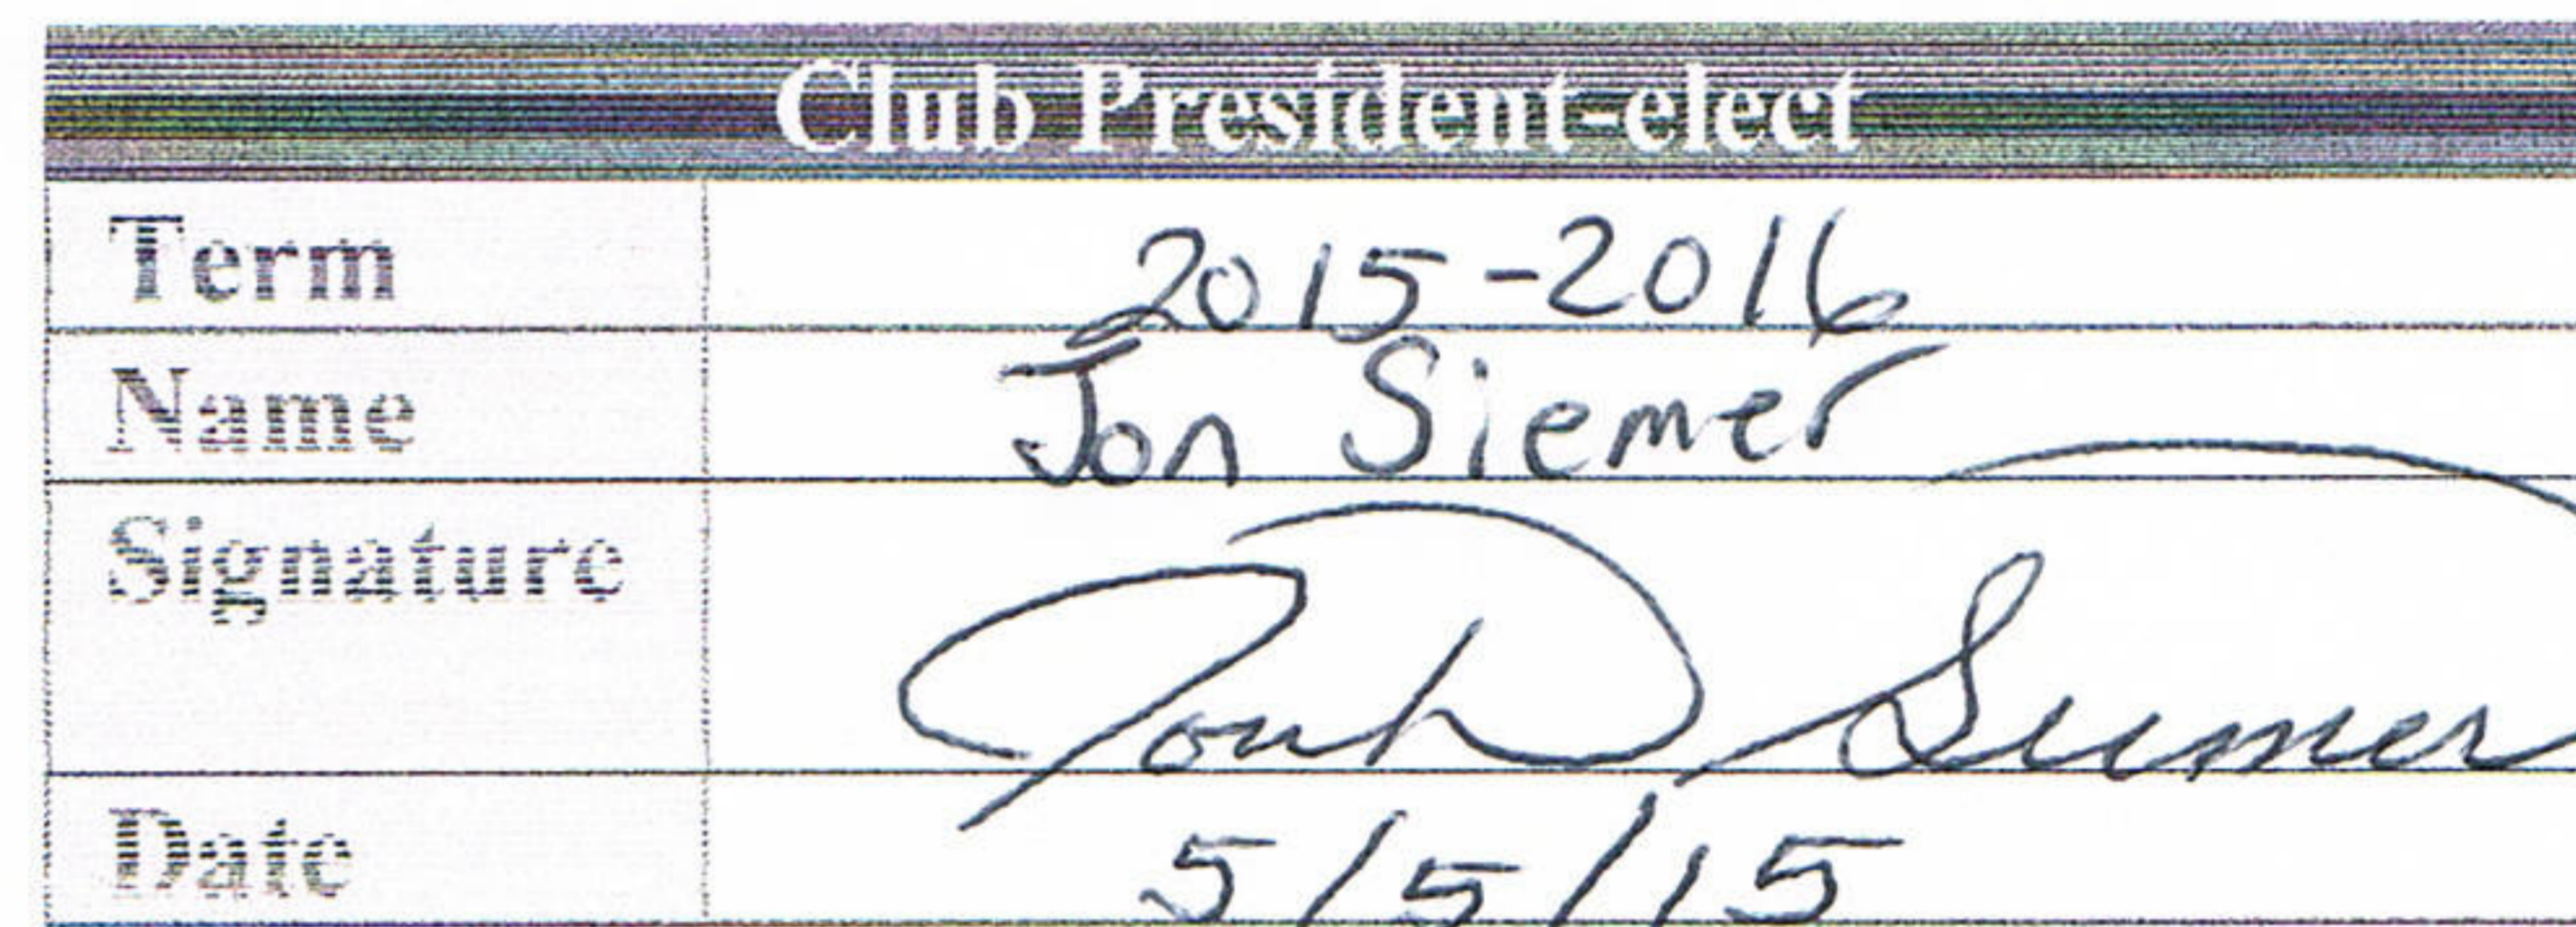 Club President-elect
Term 2015-2016
Name Jon Siemer
Signature Siemer
Date 5/5/15